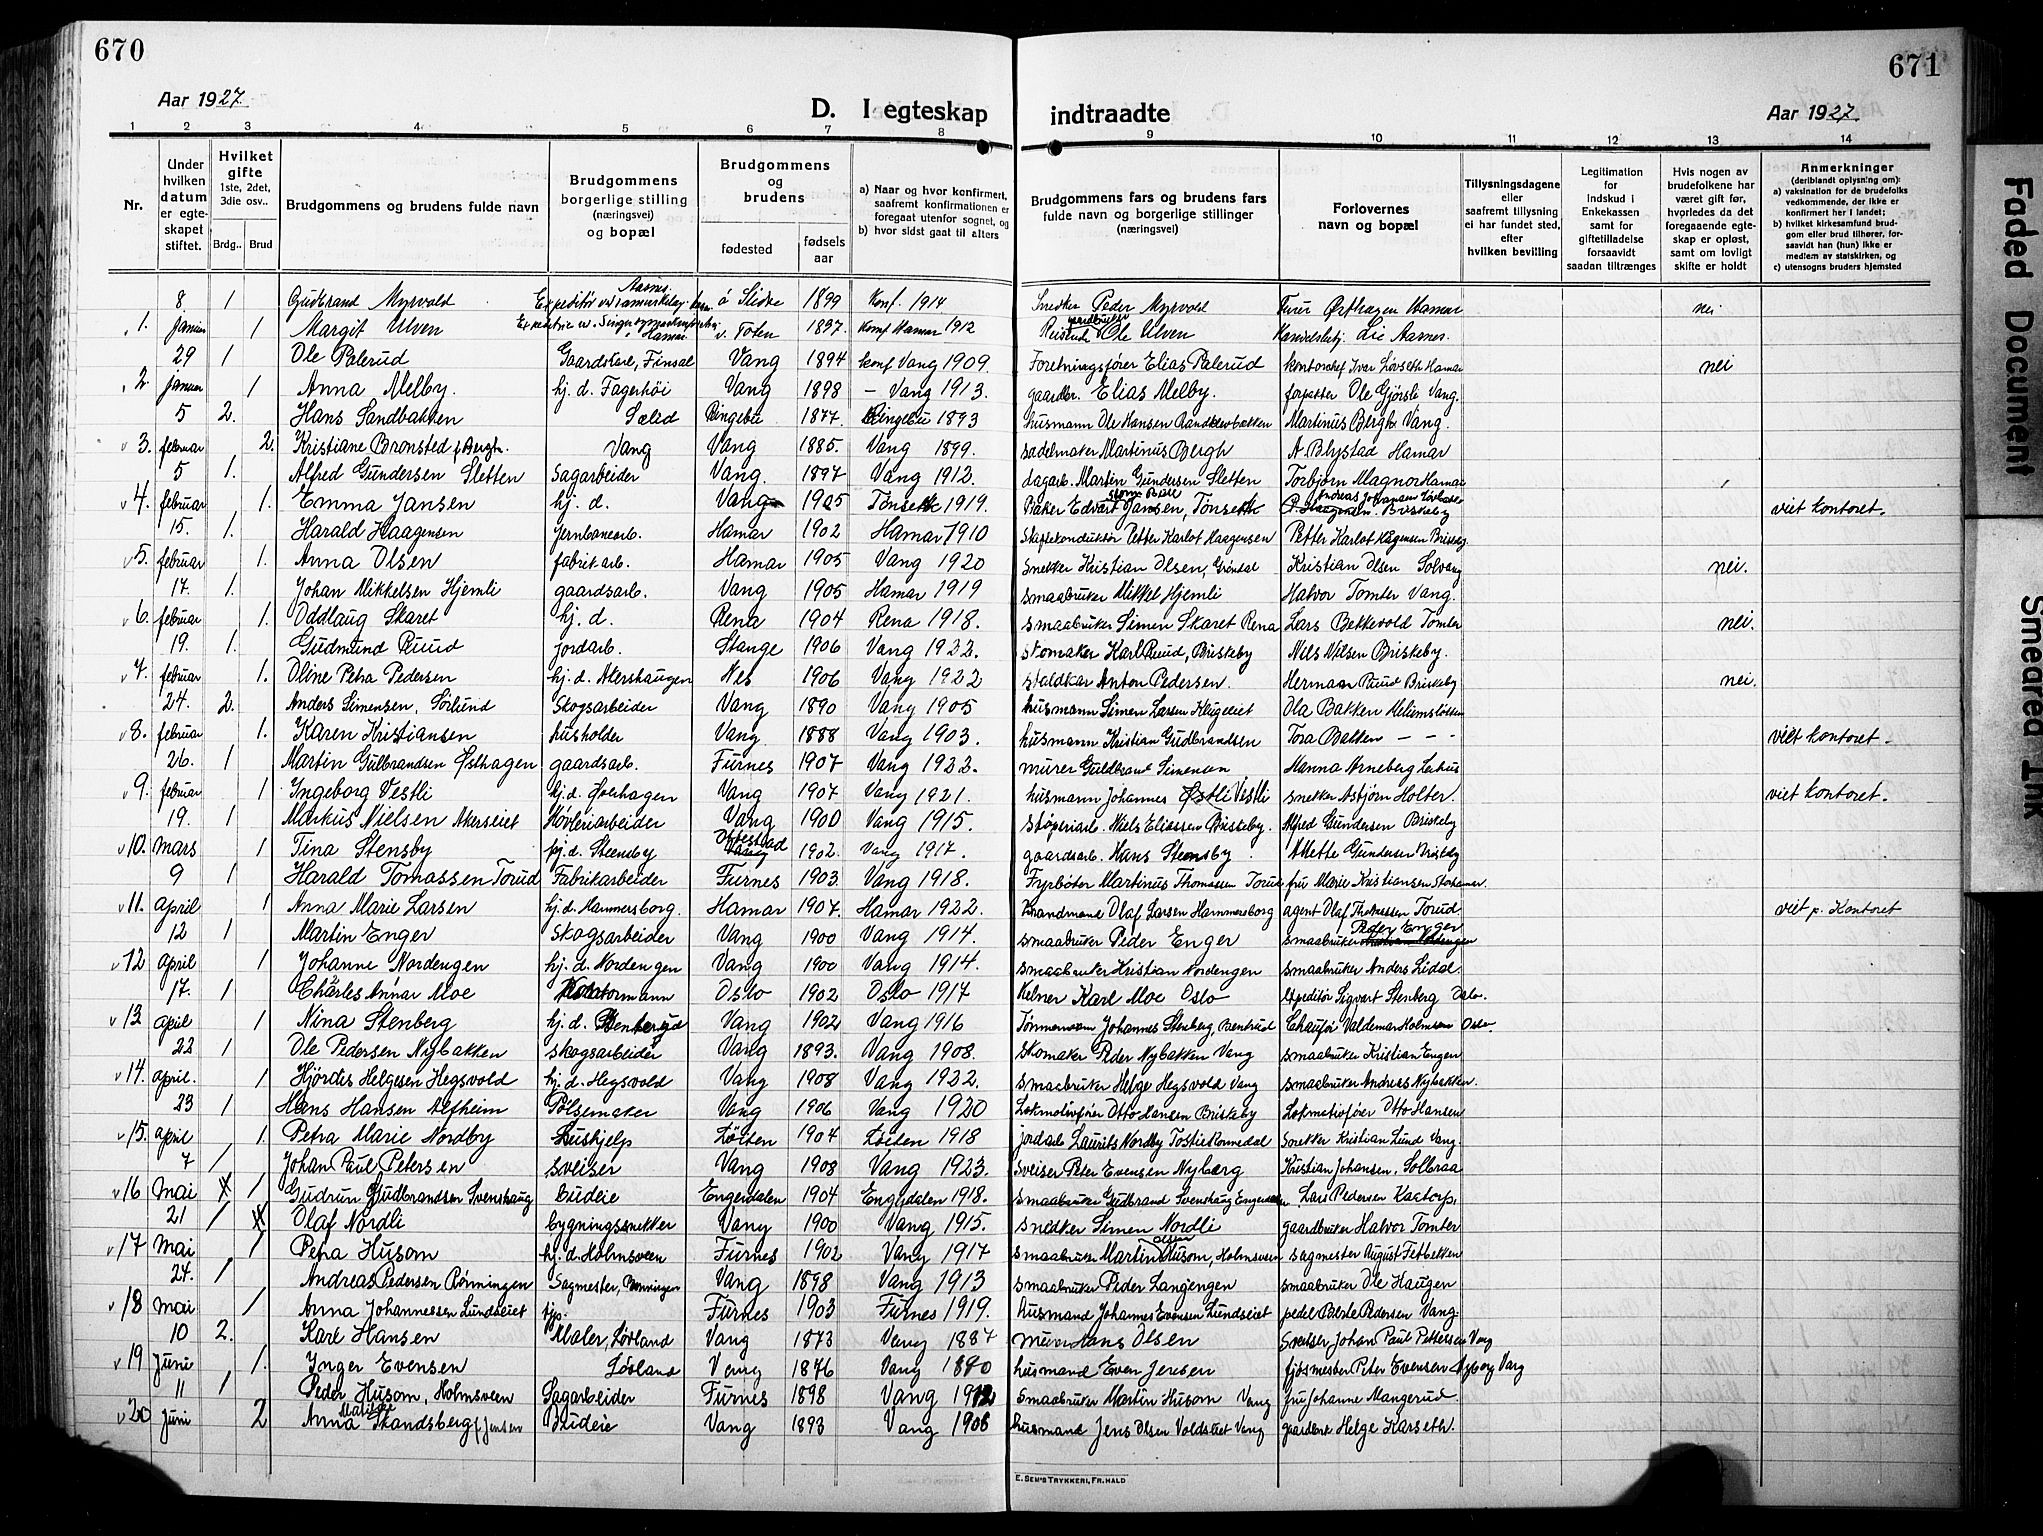 670
671
Aar 1927.
D. I egteskap
indtraadte
Aar 1927.
1 2 3 4 5 6 7 8 9 10 11 12 13 14
Nr.
Under hvilken datum er egteskapet stiftet.
Hvilket gifte
1ste, 2det, 3die osv..
Brdg.. Brud
Brudgommens og brudens fulde navn
Brudgommens borgerlige stilling (næringsvei) og bopæl
Brudgommens og brudens
fødested
fødselsaar
a) Naar og hvor konfirmert, saafremt konfirmationen er foregaat utenfor sognet, og
b) hvor sidst gaat til alters
Brudgommens fars og brudens fars fulde navn og borgerlige stillinger (næringsvei)
Forlovernes navn og bopæl
Tillysningsdagene eller saafremt tillysning ei har fundet sted, efter hvilken bevilling
Legitimation for Indskud i Enkekassen samt for giftetilladelse forsaavidt saadan tiltrænges
Hvis nogen av brudefolkene har været gift før, hvorledes da det foregaaende egteskap er opløst, samt om lovligt skifte er holdt
Anmerkninger
(deriblandt oplysning om):
a) vaksination for de brudefolks vedkommende, der ikke er konfirmert her i landet;
b) hvilket kirkesamfund brudgom eller brud tilhører, forsaavidt han (hun) ikke er medlem av statskirken, og
c) utensogns bruders hjemsted
8 1 Gudbrand Myrvold ø Slidre 1899 Konf. 1914 Snedker Peder Myrvold nei
1. januar 1 Margit Ulven v. Toten 1897. Konf Hamar 1912 Ole Ulven Lie Aasnes.
29 1 Ole Palerud Gaardskarl, Finsal Vang 1894 konf Vang 1909. Forretningsfører Elias Palerud kontorchef Iver Løvseth Hamar nei
2. januar 1 Anna Melby. hj. d. Fagerhøi Vang 1898 – Vang 1913. gaardbr. Elias Melby. forpakter Ole Gjørsli Vang.
5 2. Hans Sandbakken Sælid Ringebu 1877. Ringebu 1893 husmann Ole Hansen Martinus Bergh Vang.
3. februar 2. Kristiane Bronsted f. Bergh. Vang Vang 1885. Vang 1899. sadelmaker Martinus Bergh A. Blystad Hamar
5 1. Alfred Gundersen Sletten Sagarbeider Vang. 1897 Vang 1912. dagarb. Martin Gundersen Sletten Torbjørn Magnor Hamar
4. februar 1. Emma Jansen hj. d. Vang 1905 Tønset 1919. Baker Edvart Jansen, Tønset Briskeby viet kontoret.
15. 1. Harald Haagensen jernbanearb. Hamar 1902 Hamar 1910 Petter Karlot Haagensen Petter Karlot Haagensen Briskeby
5. februar 1. Anna Olsen fabrikarb. Hamar 1905 Vang 1920 snekker Kristian Olsen, Grøndal Kristian Olsen Solvang nei.
17. 1. Johan Mikkelsen Hjemli gaardsarb. Vang 1905 Hamar 1919 smaabruker Mikkel Hjemli Halvor Tomter Vang.
6. februar 1. Oddlaug Skaret hj. d. Rena 1904 Rena 1918. smaabruker Simen Skaret Rena Lars Bekkevold Tomter nei.
19. 1. Gudmund Ruud jordarb. Stange 1906 Vang 1922. skomaker Karl Ruud, Briskeby Nils Nilsen Briskeby.
7. februar 1. Oline Petra Pedersen hj. d. Akershaugen Nes 1906 Vang 1922 staldkar Anton Pedersen. Herman Ruud Briskeby nei.
24. 2. Anders Simensen, Sørlund Skogsarbeider Vang 1890 Vang 1905 husmann Simen Larsen Haugeiet Ola Bakken
8. februar 1. Karen Kristiansen husholder Vang 1888 Vang 1903. husmann Kristian Gudbrandsen Tora Bakken – – – viet kontoret.
26. 1 Martin Gulbrandsen Østhagen gaardsarb. Furnes 1907 Vang 1922. murer Guldbrand Simensen Hanna Arneberg
9. februar 1 Ingeborg Vestli hj. d. Vang 1907 Vang 1921. husmann Johannes Østli Vestli snekker Asbjørn Holter. viet kontoret.
19. 1 Markus Nielsen Akerseiet Høvleriarbeider Vang 1900 Vang 1915. støperiarb. Niels Eliassen Briskeby. Alfred Gundersen Briskeby
10. mars 1 Tina Stensby hj. d. Stensby Ottestad Vang 1902. Vang 1917. gaardsarb. Hans Stensby Mette Gundersen Briskeby
9 1 Harald Tomassen Torud Fabrikarbeider Furnes 1903 Vang 1918. Fyrbøter Martinus Thomassen Torud fru Marie Kristiansen Storhamar.
11. april 1 Anna Marie Larsen hj. d. Hammersborg. Hamar 1907. Hamar 1922. Olaf Larsen Hammersborg agent Olaf Thomassen Torud. viet p. Kontoret
12 1 Martin Enger Skogsarbeider Vang 1900 Vang 1914. smaabruker Peder Enger smaabruker Peder Enger
12 april 1 Johanne Nordengen hj. d. Nordengen Vang 1900 Vang 1914. smaabruker Kristian Nordengen smaabruker Anders Lidal.
17. 1 Charles Annar Moe Kontormann Oslo 1902 Oslo 1917 Kelner Karl Moe Oslo Expeditør Sigvart Stenberg Oslo.
13 april 1 Nina Stenberg hj. d. Vang 1902 Vang 1916 Tømmermann Johannes Stenberg, Bentrud Chaufør Valdemar Holmsen Oslo
22 1 Ole Pedersen Nybakken skogsarbeider Vang 1893. Vang 1908. Skomaker Peder Nybakken Vang smaabruker Kristian Engen
14. april. 1 Hjørdis Helgesen Hegsvold hj. d. Hegsvold Vang 1908 Vang 1922. smaabruker Helge Hegsvold Vang smaabruker Andreas Nybakken.
23 1 Hans Hansen Alfheim Pølsemaker Vang 1906 Vang 1920 Lokmotivfører Otto Hansen Briskeby Lokmotivfører Otto Hansen
15. april 1. Petra Marie Nordby Hushjelp Løiten 1904 Løiten 1918 jordarb Laurits Nordby snekker Kristian Lund Vang.
7 1 Johan Paul Petersen sveiser Vang 1908 Vang 1923. Sveiser Peter Evensen Nyberg Kristian Johansen, Solbraa
16 Mai 1 Gudrun Gudbrandsen Svenshaug budeie Engerdalen 1904 Engerdalen 1918. smaabruker Gudbrand Svenshaug Engerdalen Lars Pedersen Kaatorp.
21 1 Olaf Nordli bygningssnekker Vang 1900 Vang 1915. snedker Simen Nordli gaardbruker Halvor Tomter
17 Mai 1 Petra Husom hj. d. Holmsveen Furnes 1902 Vang 1917 smaabruker Martin Olsen Husom, Holmsveen sagmester August Fetbekken
24. 1 Andreas Pedersen Rønningen Sagmester, Rønningen Vang 1898 Vang 1913 smaabruker Peder Langengen smaabruker Ole Haugen
18 mai 1 Anna Johannessen Lundseiet Furnes 1903 Furnes 1919. husmand Johannes Evensen Lundseiet pedel Berte Pedersen Vang.
10 2. Karl Hansen Maler, Løvland Vang 1873 Vang 1887 murer Hans Olsen Sveiser Johan Paul Pettersen Vang
19 Juni 1. Inger Evensen Løvland Vang 1876 Vang 1890 husmand Even Jensen fjøsmester Peter Evensen Nyborg Vang
11 1 Peder Husom, Holmsveen Sagarbeider Furnes 1898 Vang 1912 smaabruker Martin Husom Vang fru Johanne Mangerud.
20 Juni 2 Anna Matilde Strandsberg f. Jensen Budeie Vang 1893 Vang 1908 husmand Jens Olsen Voldseiet Vang gaardbruk Helge Karseth.
E. SEM'S TRYKKERI, FR.HALD
Faded Document
Smeared Ink